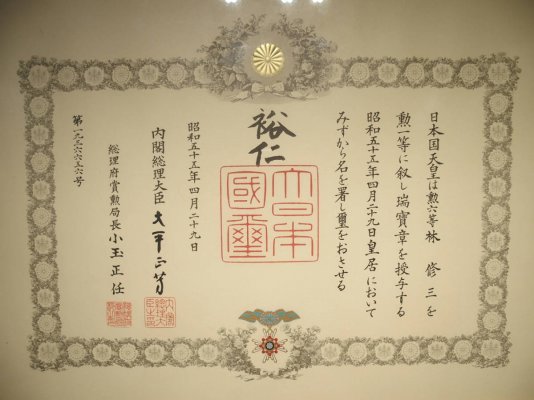 日本国天皇は勲六等林修三を
勲一等に叙し瑞寶章を授与する
昭和五十五年四月二十九日皇居において
みずから名を署し璽をおさせる
裕仁
大日本國璽
昭和五十五年四月二十九日
内閣総理大臣大平正芳
総理府賞勲局長小玉正任
第一九三六六五六号